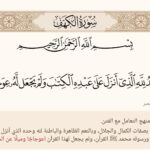 سُورَةُ الكَهْفِ
بِسْمِ اللَّهِ الرَّحْمَٰنِ الرَّحِيمِ
لِلَّهِ الَّذِي أَنزَلَ عَلَىٰ عَبْدِهِ الْكِتَابَ وَلَمْ يَجْعَل لَّهُ عِوَجَا
منهج التعامل مع الفتن.
بصفات الكمال والجلال، وبالنعم الظاهرة والباطنة لله وحده الذي أنزل
ورسوله محمد ﷺ القرآن، ولم يجعل لهذا القرآن اعوجاجًا وميلًا عن